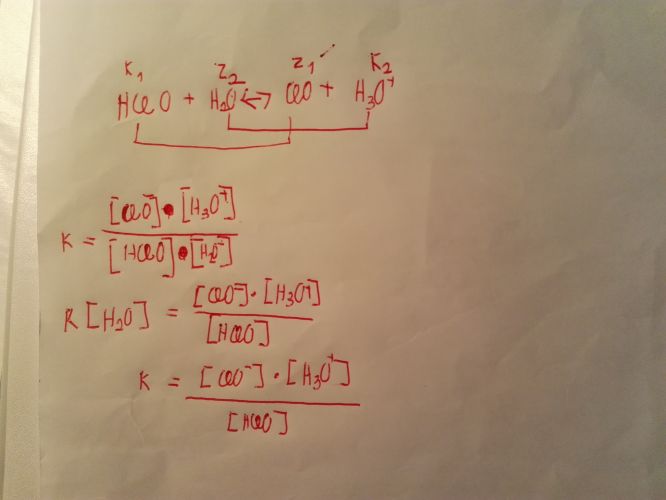 K₁ Z₂ Z₁ K₂
HClO + H₂O ↔ ClO⁻ + H₃O⁺
K = [ClO⁻]•[H₃O⁺] / [HClO]•[H₂O]
K [H₂O] = [ClO⁻]·[H₃O⁺] / [HClO]
K = [ClO⁻]·[H₃O⁺] / [HClO]